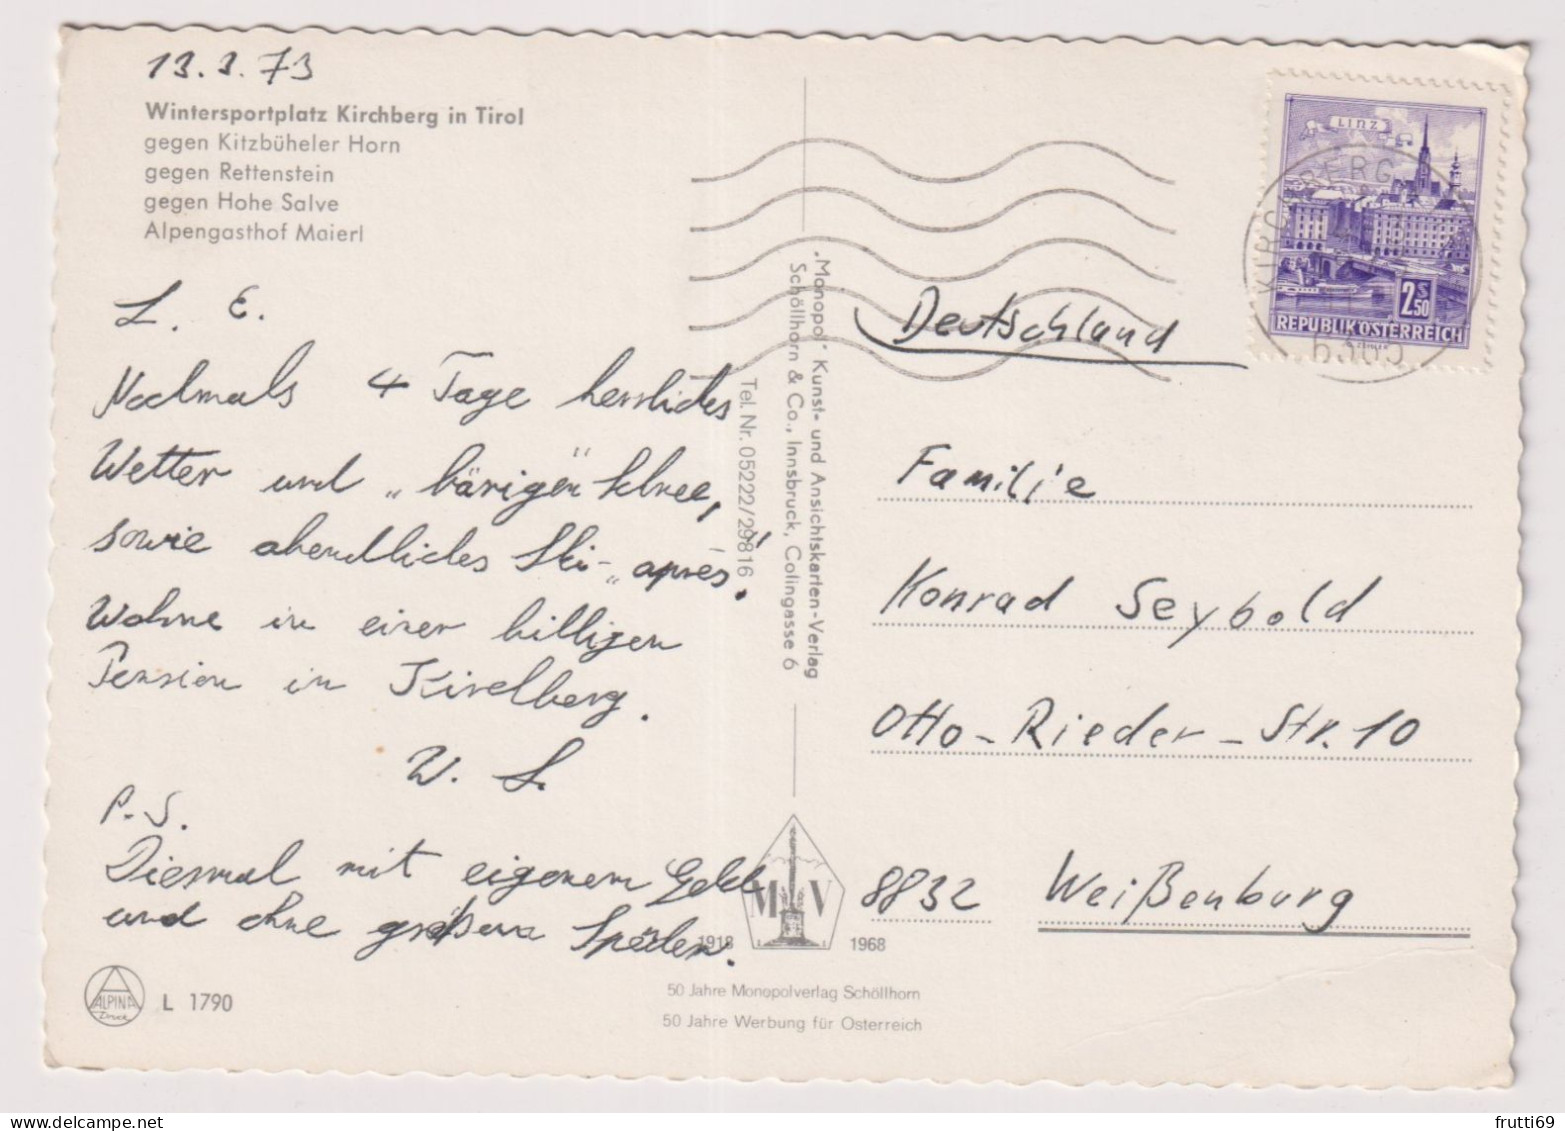 13.3.73
Wintersportplatz Kirchberg in Tirol
gegen Kitzbüheler Horn
gegen Rettenstein
gegen Hohe Salve
Alpengasthof Maierl
L. E.
Nochmals 4 Tage herrliches
Wetter und „bärigen" Schnee,
sowie abendliches Ski-„après".
Wohne in einer billigen
Pension in Kirchberg.
W. L.
P.S.
Diesmal mit eigenem Geld
und ohne größere Spesen.
ALPINA
Druck
L 1790
„Monopol" Kunst- und Ansichtskarten-Verlag
Schöllhorn & Co., Innsbruck, Colingasse 6
Tel. Nr. 05222/29816
M V
1918 1968
50 Jahre Monopolverlag Schöllhorn
50 Jahre Werbung für Österreich
LINZ
2 S 50
REPUBLIK ÖSTERREICH
KIRCHBERG
6365
Deutschland
Familie
Konrad Seybold
Otto-Rieder-Str. 10
8832 Weißenburg
frutti69